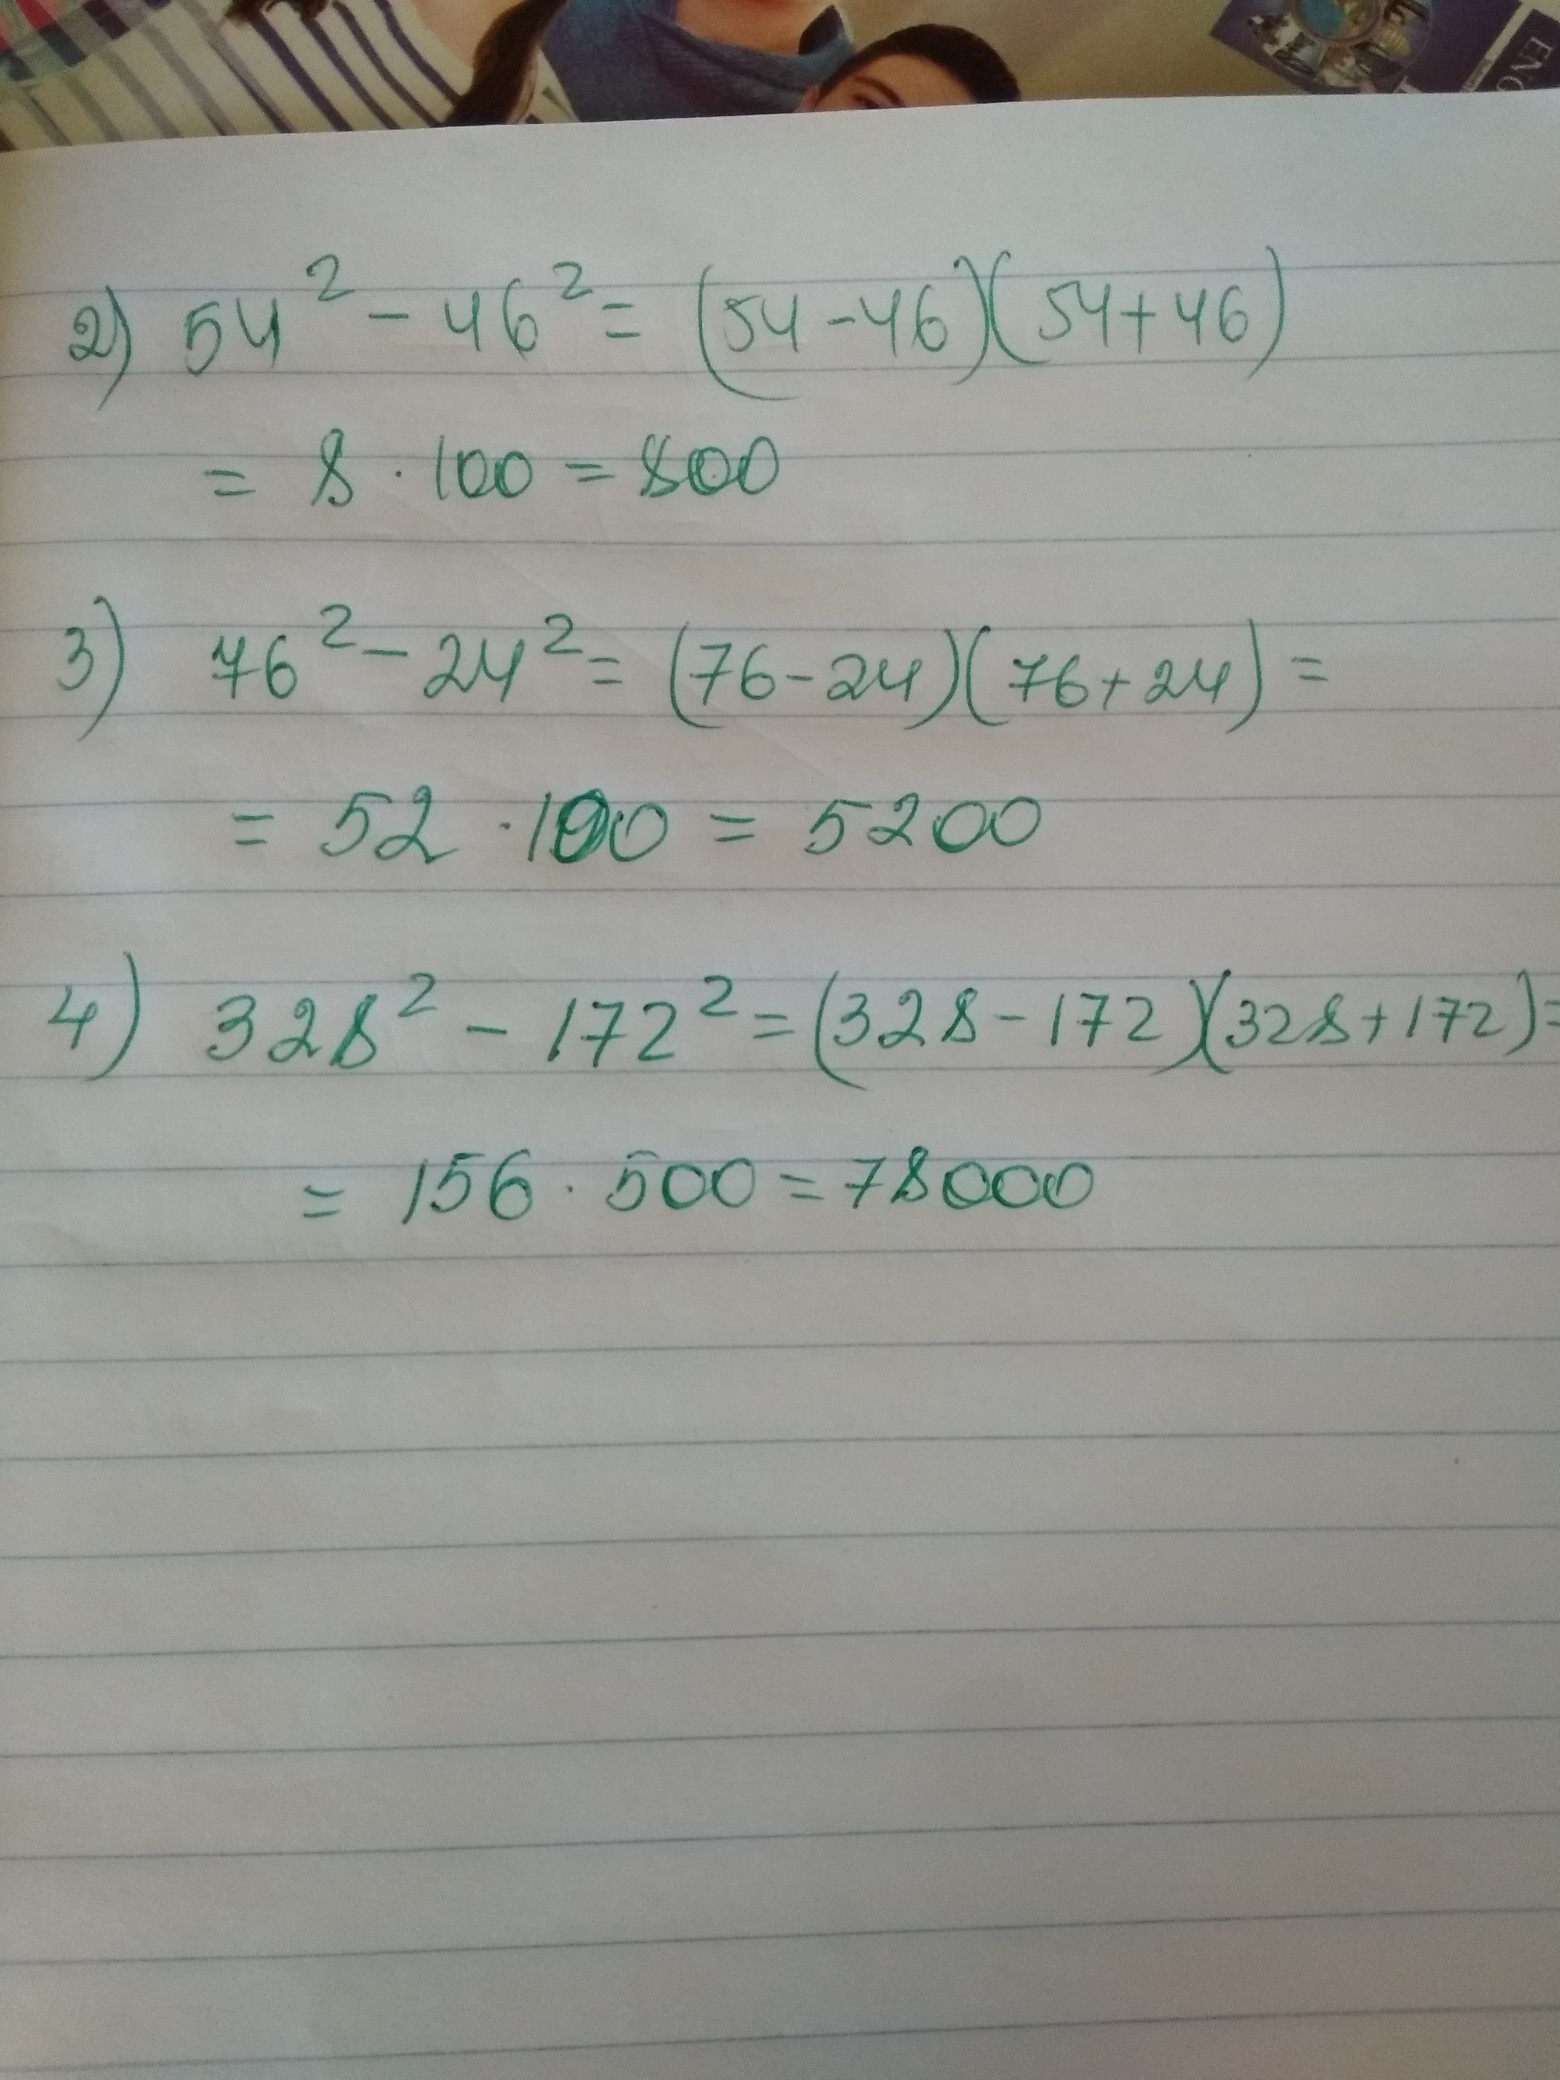 ENG
2) 54² - 46² = (54-46)(54+46)
= 8 · 100 = 800
3) 76² - 24² = (76-24)(76+24) =
= 52 · 100 = 5200
4) 328² - 172² = (328-172)(328+172)=
= 156 · 500 = 78000